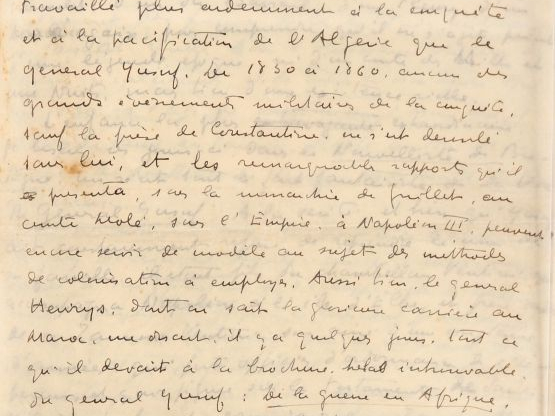 travaillé plus ardemment à la conquête
et à la pacification de l'Algérie que le
général Yusuf. De 1830 à 1860, aucun des
grands évènements militaires de la conquête,
sauf la prise de Constantine, ne s'est déroulé
sans lui, et les remarquables rapports qu'il
présenta, sous la monarchie de Juillet, au
comte Molé, sous l'Empire, à Napoléon III, peuvent
encore servir de modèle au sujet des méthodes
de colonisation à employer. Aussi bien, le général
Henrys, dont on sait la glorieuse carrière au
Maroc, me disait, il y a quelques jours, tout ce
qu'il devait à la brochure, hélas introuvable,
du général Yusuf : De la guerre en Afrique.